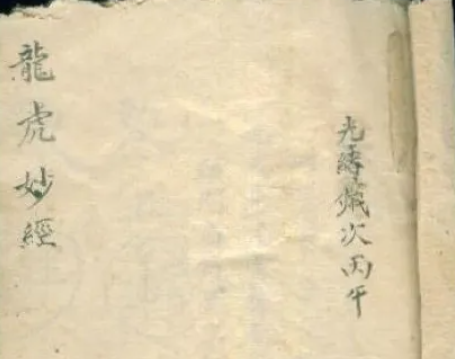 光緖歲次丙午
龍虎妙經